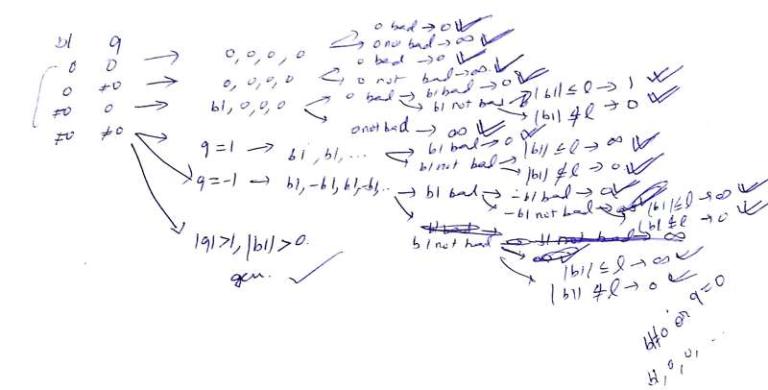 b1 q
0 0 → 0, 0, 0, 0 → 0 bad → 0 ✓
0 not bad → ∞ ✓
0 ≠0 → 0, 0, 0, 0 → 0 bad → 0 ✓
0 not bad → ∞ ✓
≠0 0 → b1, 0, 0, 0 → 0 bad → b1 bad → 0 ✓
b1 not bad → |b1| ≤ l → 1 ✓
|b1| ≰ l → 0 ✓
0 not bad → ∞ ✓
≠0 ≠0
q=1 → b1, b1, ... → b1 bad → 0 ✓
b1 not bad → |b1| ≤ l → ∞ ✓
|b1| ≰ l → 0 ✓
q=-1 → b1, -b1, b1, -b1, .. → b1 bad → -b1 bad → 0 ✓
-b1 not bad → |b1| ≤ l → ∞ ✓
|b1| ≰ l → 0 ✓
b1 not bad
|b1| ≤ l → ∞ ✓
|b1| ≰ l → 0 ✓
|q|>1, |b1|>0.
gen. ✓
b1≠0 or q=0
b1, 0, 0, ...